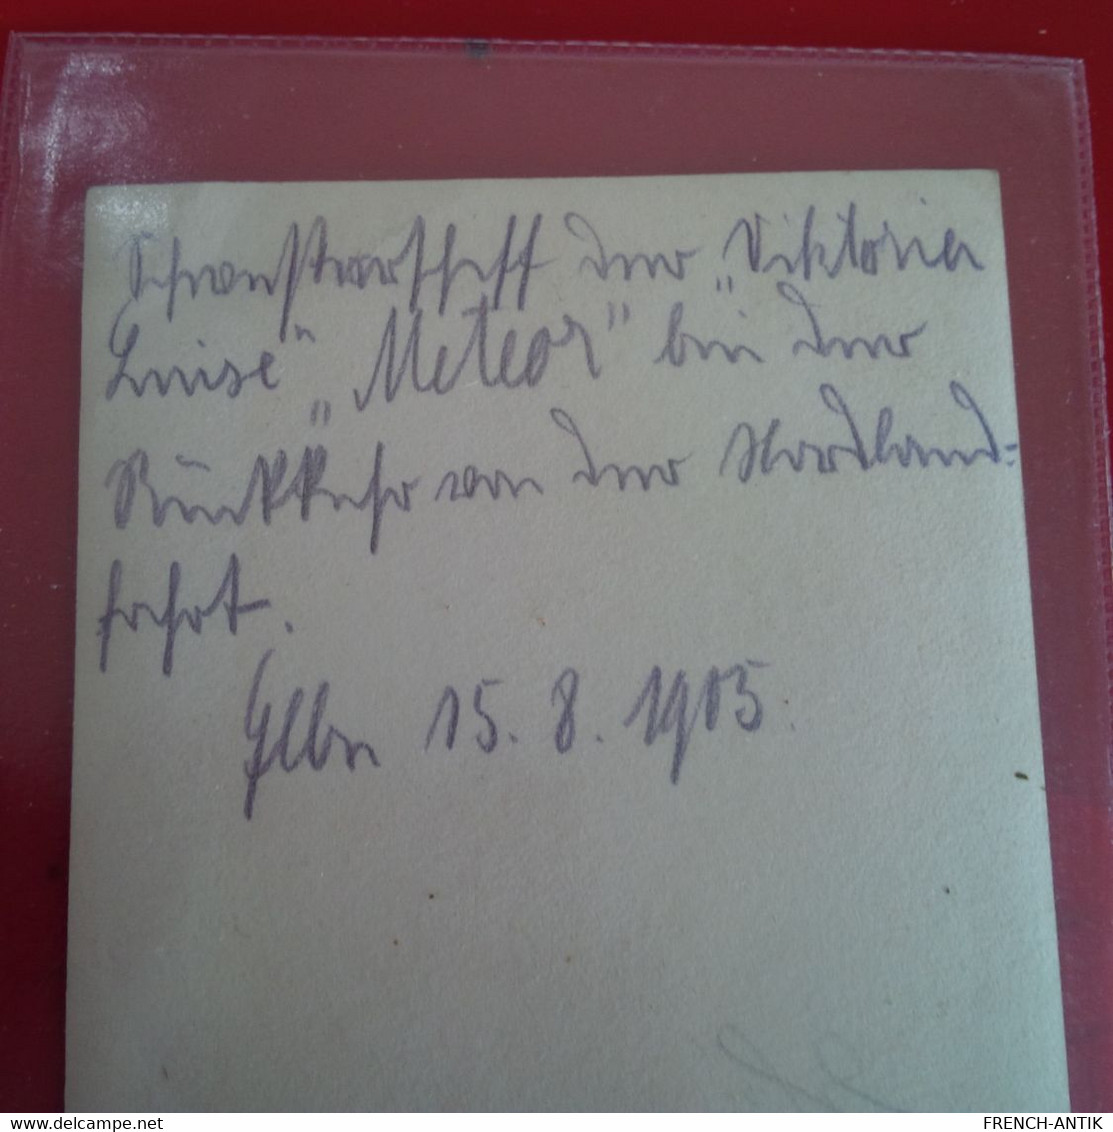 Schwesterschiff der „Viktoria
Luise" „Meteor" bei der
Rückkehr von der Nordland-
fahrt.
Elbe 15. 8. 1905.
delcampe.net
FRENCH-ANTIK